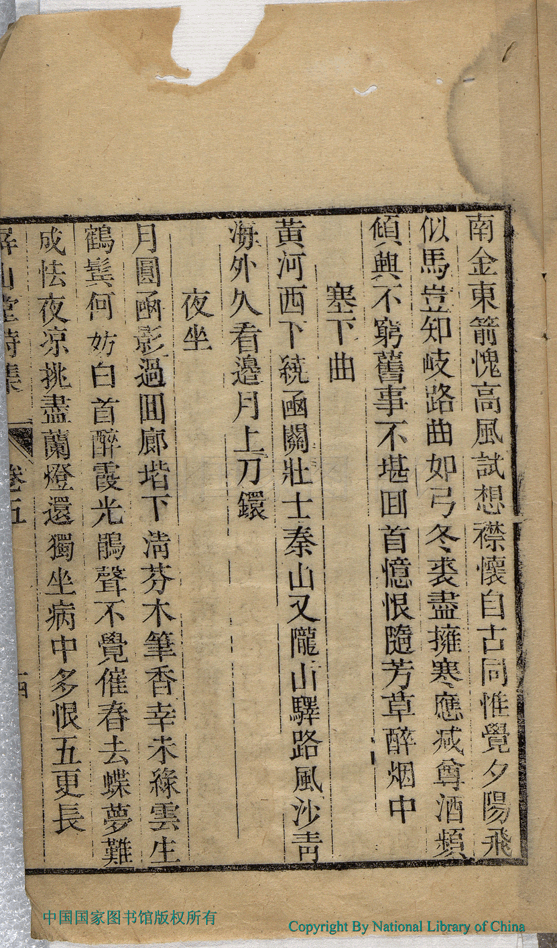 南金東箭愧高風試想襟懷自古同惟覺夕陽飛
似馬豈知岐路曲如弓冬裘盡擁寒應减尊酒頻
傾興不窮舊事不堪囬首憶恨隨芳草醉烟中
塞下曲
黃河西下統函關壯士秦山又隴山驛路風沙靑
海外久看邊月上刀鐶
夜坐
月圓函影過囬廊堦下淸芬木筆香幸未綠雲生
鶴鬂何妨白首醉霞光鵑聲不覺催春去蝶夢難
成怯夜凉挑盡蘭燈還獨坐病中多恨五更長
山堂詩集
卷五
中国国家图书馆版权所有
Copyright By National Library of China